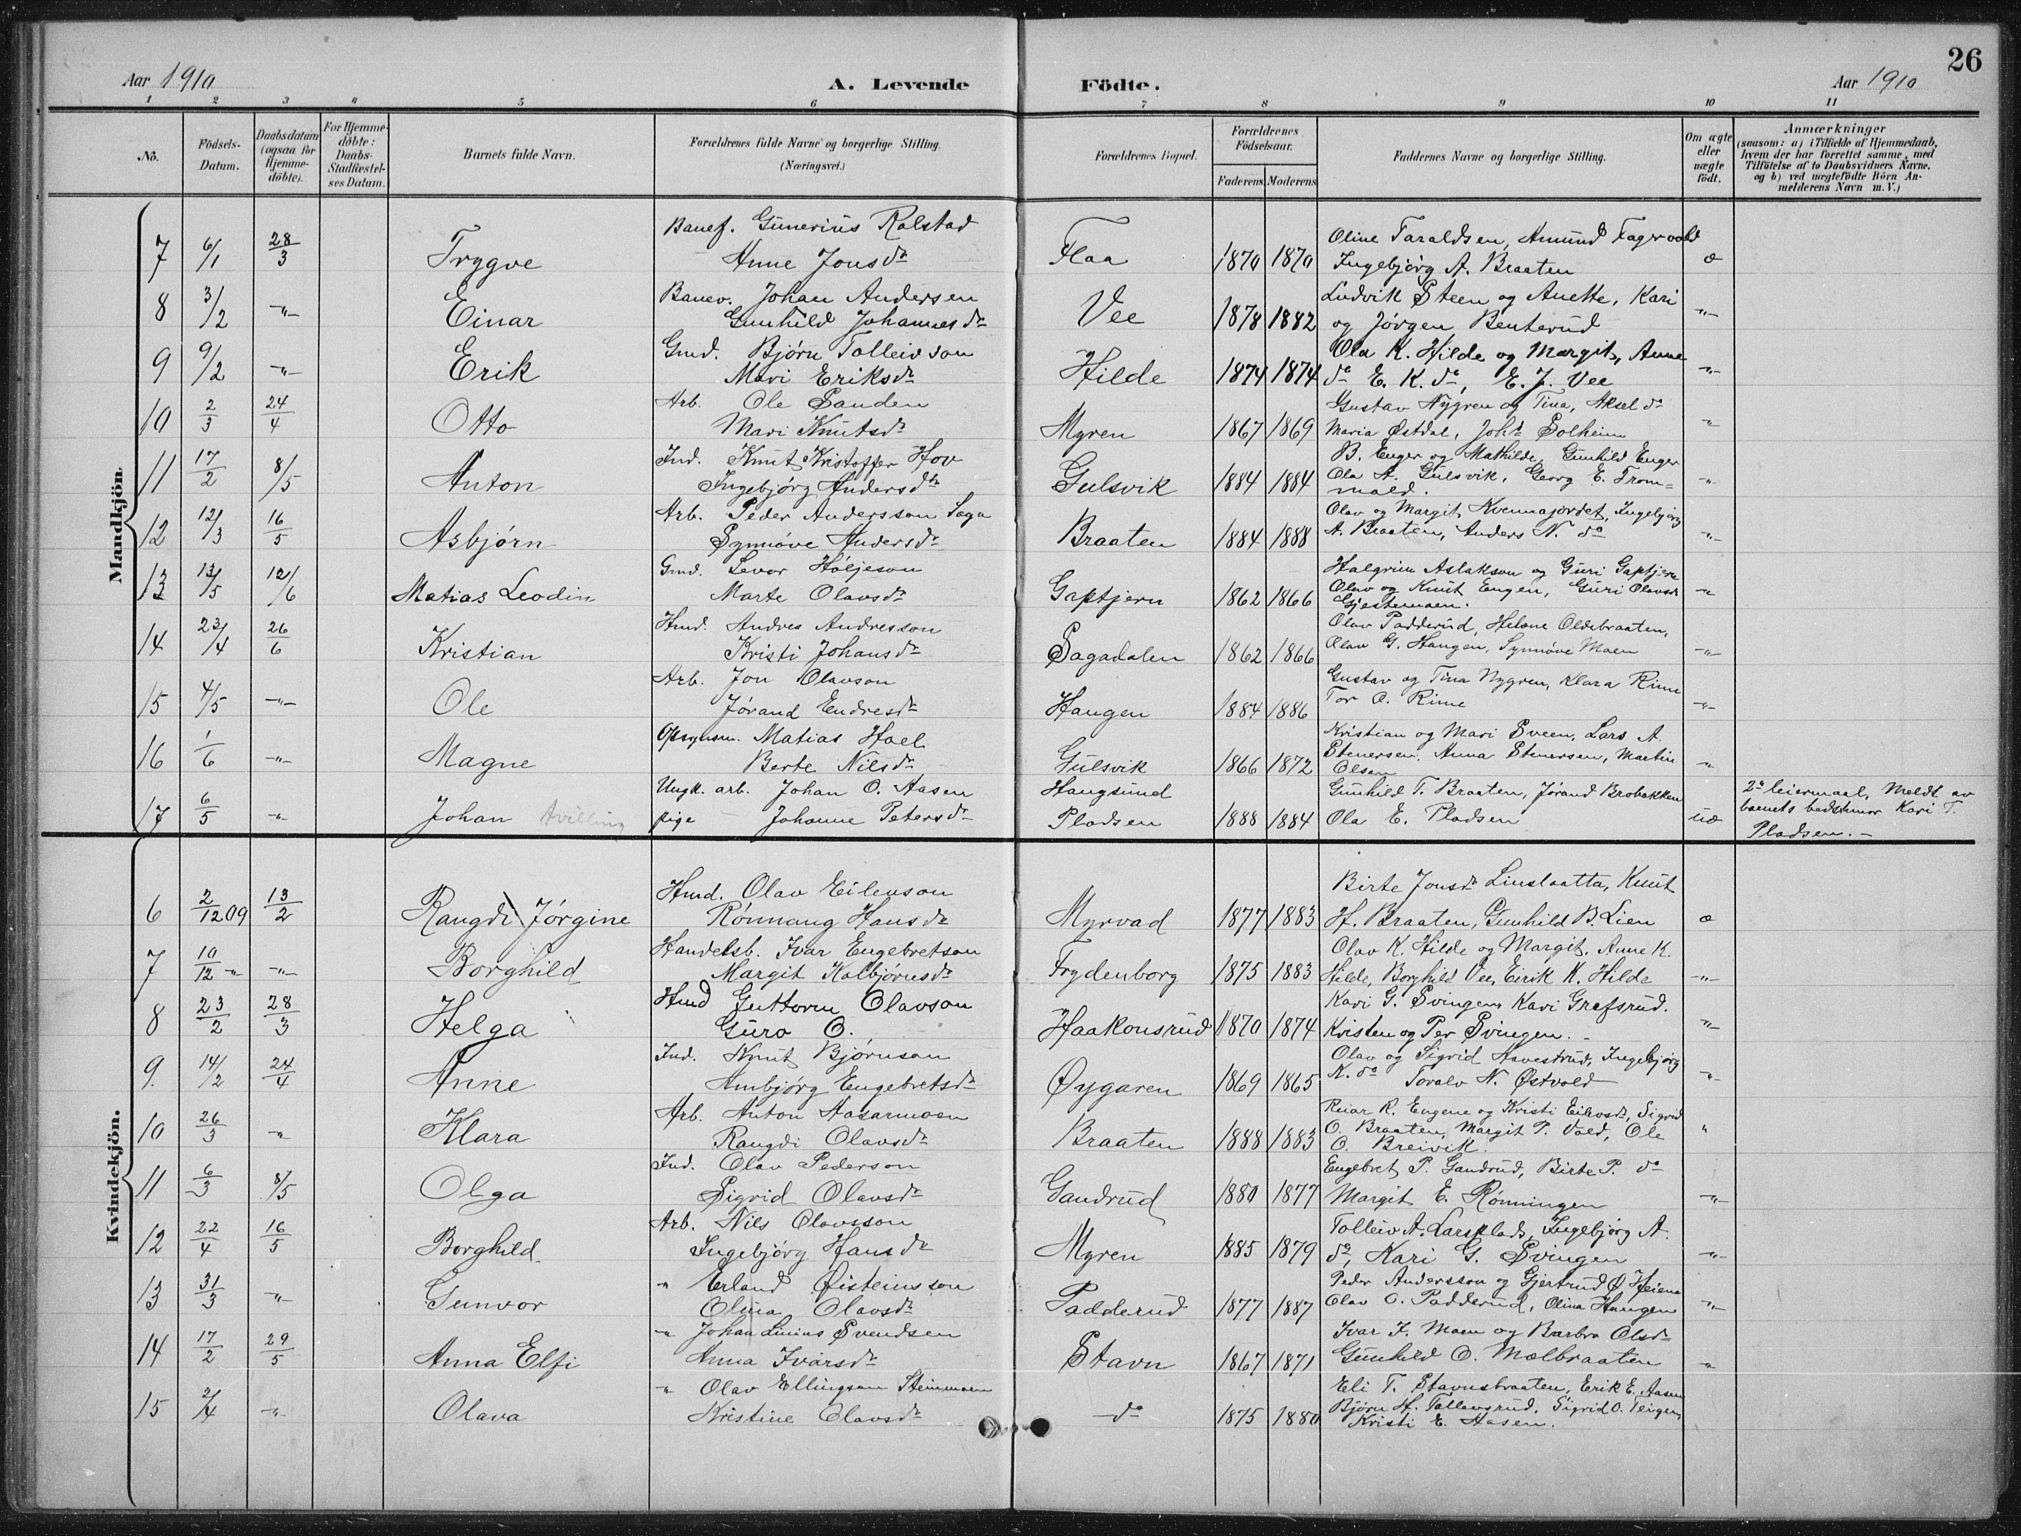 26
Aar 1910 A. Levende Födte. Aar 1910
1 2 3 4 5 6 7 8 9 10 11
No. Födsels-Datum. Daabsdatum (ogsaa for Hjemme-döbte). For Hjemme-döbte: Daabs-Stadfæstel-ses Datum. Barnets fulde Navn. Forældrenes fulde Navne og borgerlige Stilling. (Næringsvei.) Forældrenes Bopæl. Forældrenes Födselsaar. Faderens Moderens Faddernes Navne og borgerlige Stilling. Om ægte eller uægte födt. Anmærkninger (saasom: a) i Tilfælde af Hjemmedaab, hvem der har forrettet samme, med Tilföielse af to Daabsvidners Navne. og b) ved uægtefödte Börn An-melderens Navn m. V.)
Mandkjön.
Banef. Gunerius Rolstad Oline Taraldsen, Amund Fagervold
7 6/1 28/3 Trygve Anne Jonsdr Flaa 1870 1870 Ingebjörg A. Braaten æ
Banev. Johan Andersen Ludvik Steen og Anette, Kari
8 3/2 -"- Einar Gunhild Johannesdr Vee 1878 1882 og Jörgen Benterud -"-
Gmd. Bjørn Tolleivson Ola K. Hilde og Margit, Anne
9 9/2 -"- Erik Mari Eriksdr Hilde 1874 1874 do E. K. do, E. J. Vee -"-
Arb. Ole Sanden Gustav Nygren og Tina, Aksel do
10 2/3 24/4 Otto Mari Knutsdr Myren 1867 1869 Maria Østdal, Joh. Solheim "
Ind. Knut Kristoffer Hov B. Enger og Mathilde, Gunhild Enger
11 17/2 8/5 Anton Ingebjørg Andersdtr Gulsvik 1884 1884 Ola A. Gulsvik, Georg E. Trom= -"-
mald.
Arb. Peder Andersson Saga Olav og Margit Kvennajordet, Ingebjörg
12 12/3 16/5 Asbjørn Synnøve Andersdr Braaten 1884 1888 A. Braaten, Anders N. do -"-
Gmd. Levor Høljeson Halgrim Aslakson og Guri Gaptjern
13 13/5 12/6 Matias Leodin Marte Olavsdr Gaptjern 1862 1866 Olav og Knut Engen, Guri Olavsdr -"-
Gjestemoen.
Hmd. Andres Andresson Olav Padderud, Helene Oldebraaten,
14 23/4 26/6 Kristian Kristi Johansdr Sagadalen 1862 1866 Olav G. Haugen, Synnøve Moen -"-
Arb. Jon Olavson Gustav og Tina Nygren, Klara Rime
15 4/5 -"- Ole Jørand Endresdr Haugen 1884 1886 Tor O. Rime -"-
Opsynsm. Matias Hoel Kristian og Mari Sveen, Lars A.
16 1/6 -"- Magne Berte Nilsdr Gulsvik 1866 1872 Stenersen, Anna Stenersen, Martin "
Olsen
Ungk. arb. Johan O. Aasen Haugsund Gunhild T. Braaten, Jørand Brobakken 2det leiermaal, Meldt av
17 6/5 -"- Johan pige Johanne Petersdr Pladsen 1888 1884 Ola E. Pladsen uæ barnets bedstemor Kari T.
Pladsen. -
Kvindekjön.
Hmd. Olav Eilevson Birte Jonsdr Linslaatta, Knut
6 2/12 09 13/2 Rangdi Jørgine Rönnaug Hansdr Myrvad 1877 1883 H. Braaten, Gunhild B. Lien æ
Handelsb. Ivar Engebretson Olav K. Hilde og Margit, Anne K.
7 10/12 -"- -"- Borghild Margit Kolbjørnsdr Frydenborg 1875 1883 Hilde, Borghild Vee, Eirik K. Hilde -"-
Hmd Guttorm Olavson Kari G. Svingen, Kari Grefsrud.
8 23/2 28/3 Helga Guro O. Haakonsrud 1870 1874 Kristen og Per Svingen. - "
Ind. Knut Bjørnson Olav og Sigrid Aavestrud, Ingebjørg
9. 14/2 24/4 Anne Ambjörg Engebretsdr Øygaren 1869 1865 K. do Toralv N. Østvold -"-
Arb. Anton Aasarmoen Reiar R. Eugene og Kristi Eilevsdr, Sigrid
10 26/3 " Klara Rangdi Olavsdr Braaten 1888 1883 O. Braaten, Margit P. Vold, Ole "
O. Breivik.
Ind. Olav Pederson Engebret P. Gandrud, Birte P. do
11 6/3 8/5 Olga Sigrid Olavsdr Gandrud 1880 1877 Margit E. Rønningen -"-
Arb. Nils Olavsson Tolleiv A. Larsplads, Ingebjørg A.
12 22/4 16/5 Borghild Ingebjörg Hansdr Myren 1885 1879 do, Kari G. Svingen -"-
" Erland Øisteinsson Peder Andersson og Gjertrud Ø. Heiene
13 31/3 -"- Gunvor Olina Olavsdr Padderud 1877 1887 Olav O. Padderud, Olina Haugen -"-
" Johan Linius Svendsen Ivar I. Moen og Barbro Olsdr
14 17/2 29/5 Anna Elfi Anna Ivarsdr Stavn 1867 1871 Gunhild O. Mælbraaten "
" Olav Ellingson Steinmoen Eli T. Stavnsbraaten, Erik E. Aasen
15 2/4 -"- Olava Kristine Olavsdr - do 1875 1880 Bjørn H. Tollevsrud, Sigrid O. Teigen,
Kristi E. Aasen.